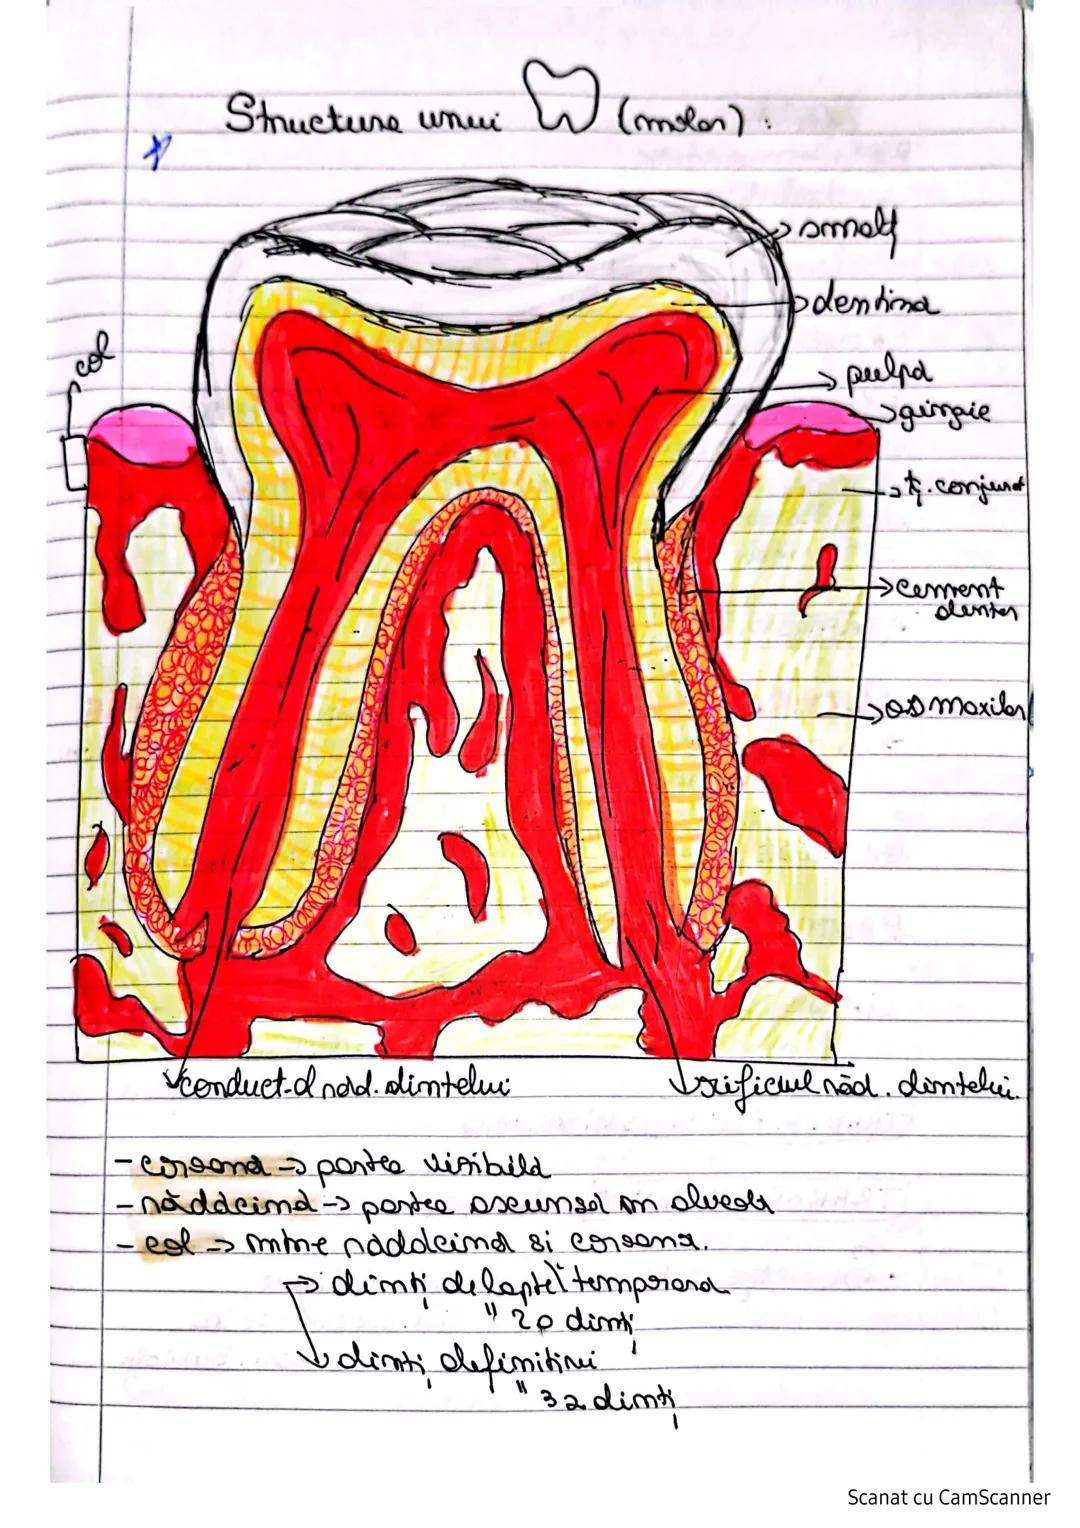 Structura unui (molar):
smalț
dentina
col
pulpa
gingie
ț. conjunct
cement
dentar
os maxilar
conduct-l răd. dintelui
orificiul răd. dintelui
- coroană -> partea vizibilă
- rădăcină -> partea ascunsă în alveolă
- col -> între rădăcină și coroană.
-> dinți de lapte\temporară
" 20 dinți
-> dinți definitivi
" 32 dinți
Scanat cu CamScanner